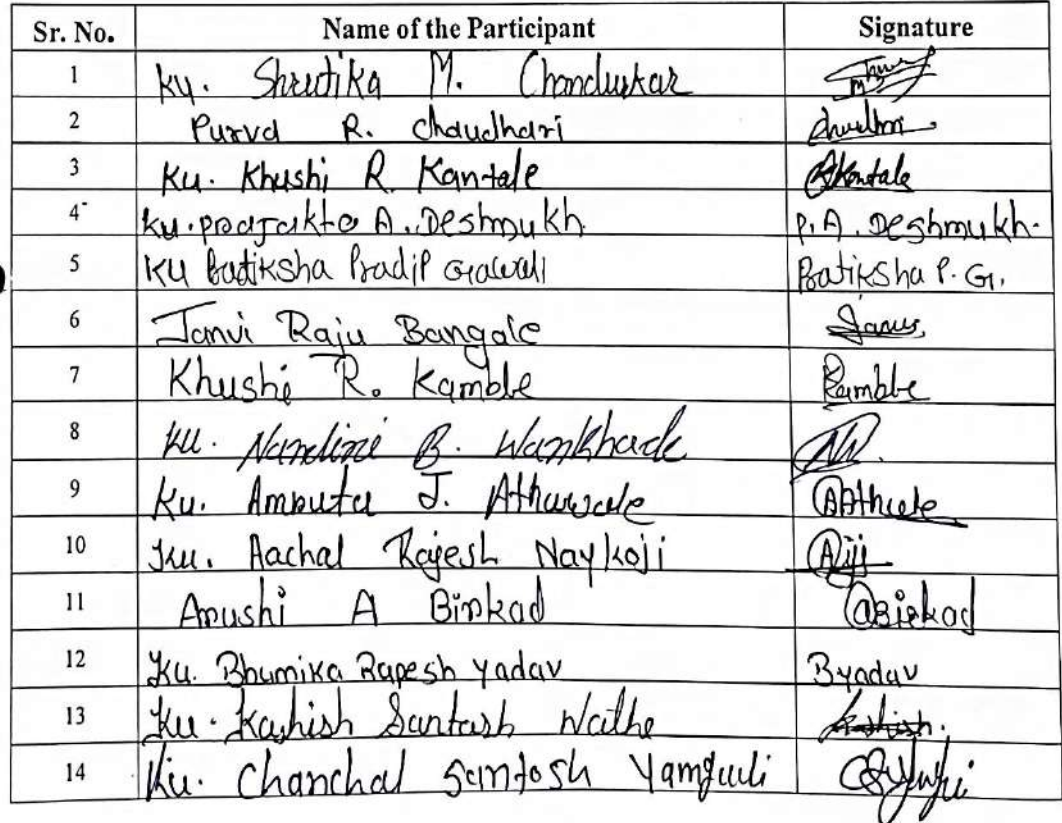 Sr. No. Name of the Participant Signature
1 Ku. Shrutika M. Chandurkar
2 Purva R. Chaudhari
3 Ku. Khushi R. Kantale Kantale
4 Ku. Prajakta A. Deshmukh. P. A. Deshmukh.
5 Ku Pratiksha Pradip Gawali Pratiksha P. G.
6 Janvi Raju Bangale
7 Khushi R. Kamble Kamble
8 Ku. Nandini B. Wankhade NW.
9 Ku. Amruta J. Athawale
10 Ku. Aachal Rajesh Naykoji
11 Arushi A Birkad ABirkad
12 Ku. Bhumika Rupesh Yadav Byadav
13 Ku. Kashish Santosh Wathe Kashish.
14 Ku. Chanchal Santosh